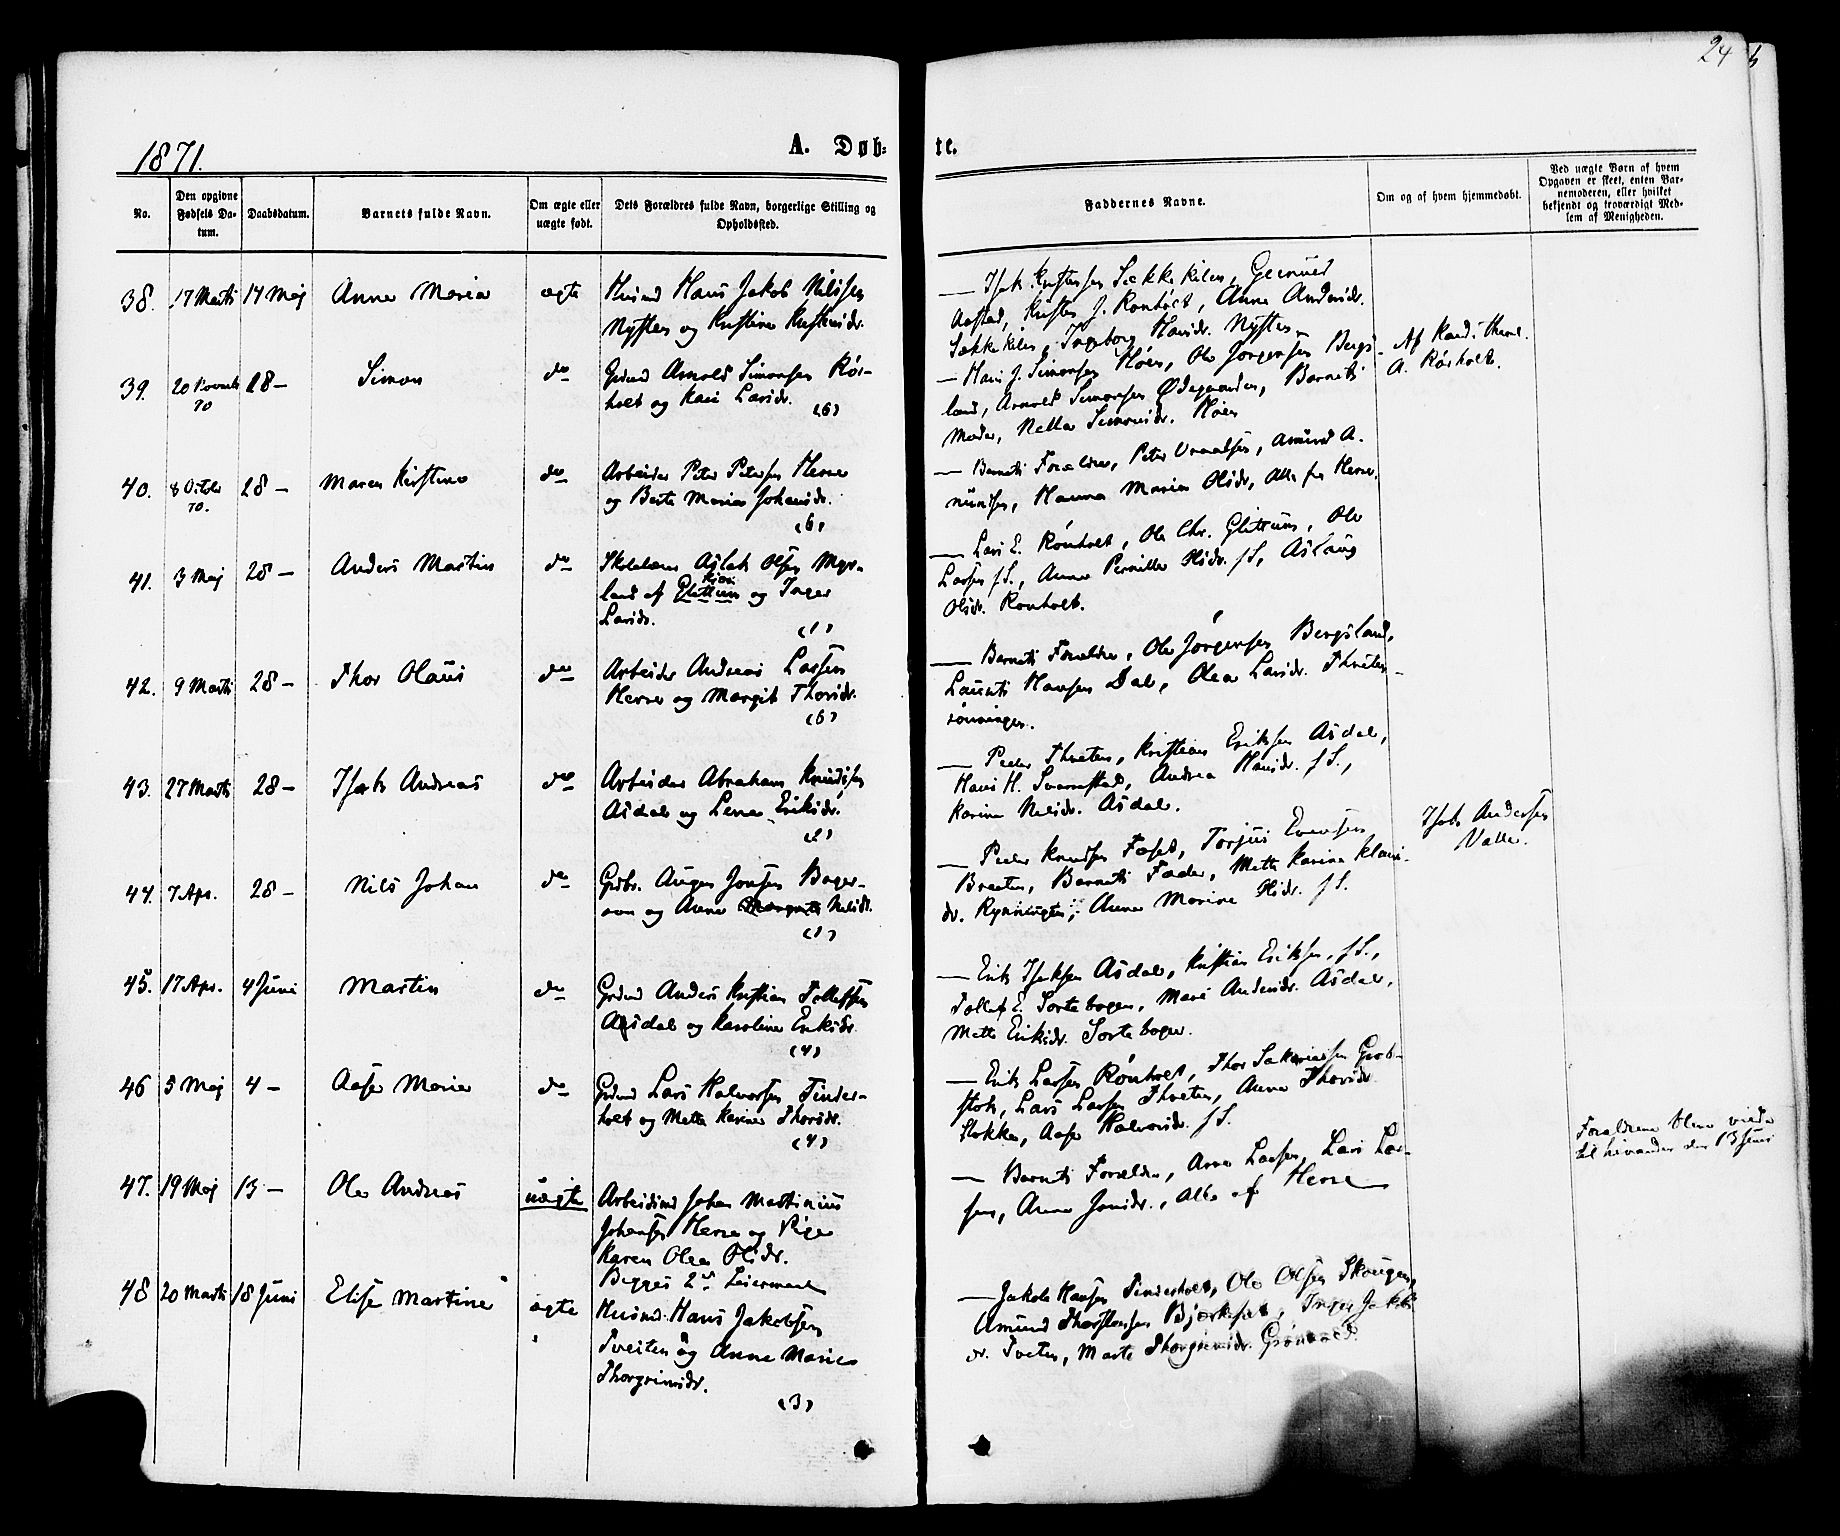 24
1871.
A. Døb-
te.
No.
Den opgivne Fødsels Da-tum.
Daabsdatum.
Barnets fulde Navn.
Om ægte eller uægte født.
Dets Forældres fulde Navn, borgerlige Stilling og Opholdssted.
Faddernes Navne.
Om og af hvem hjemmedøbt.
Ved uægte Børn af hvem Opgaven er skeet, enten Bar-nemoderen, eller hvilket bekjendt og troværdigt Med-lem af Menigheden.
38. 17 Marts 17 Maj Anne Maria ægte
Husmd Hans Jakob Nilssen
Nysten og Kristine Kristensdr.
— Isak Kristensen Sækkekilen,
Aastad, Kristen J. Ronholt, Anne Andersdr.
Sækkekilen, Ingeborg Hansdr. Nysten
39. 20 Novemb 70 28 — Simon do
Grdmd Arnold Simonsen Rør-
holt og Kari Larsdr.
(6)
— Hans J. Simonsen Høen, Ole Jørgensen Bergs-
land, Arnold Simonsen Ødegaarden, Barnets
Moder, Nella Simonsdr. Høen
Af Kand. theol.
A. Rørholt.
40. 8 Octobr 70. 28 — Maren Kirstine do
Arbeider Peter Petersen Herre
og Berte Maria Johansdr.
(6)
— Barnets Forældre, Peter Amund A.
mundsen, Hanna Maria Olsdr, Alle fra Herre.
41. 3 Maj 28 — Anders Martin do
Skolelærer Aslak Olsen Myr-
land af Glittum og Inger
Larsdr.
(1)
— Lars E. Rønholt, Ole Chr. Glittum, Ole
Larsen f S., Anne Pernille Olsdr. f S, Aslaug
Olsdr. Rønholt.
42. 9 Marts 28 — Thor Olaus do
Arbeider Andreas Larsen
Herre og Margit Thorsdr.
(6)
— Barnets Forældre, Ole Jørgensen Bergsland,
Laurits Hansen Dal, Olea Larsdr. Thveten-
rønningen.
43. 27 Marts 28 — Isak Andreas do
Arbeider Abraham Knudsen
Asdal og Lena Eriksdr.
(2)
— Peder Thveten, Kristian Eriksen Asdal,
Hans H. Svanstad, Andrea Hansdr. f S.,
Karine Nilsdr. Asdal.
44. 7 Apr. 28 — Nils Johan do
Grbr. Augen Jonsen Boger-
aen og Anne Margrete Nilsdr.
(1)
— Peder Knudsen Fosed, Torjus Evensen
Braaten, Barnets Fader, Mette Karine Klaus-
dr. Rynningen, Anne Marine Olsdr. f S.
Isak Andersen
Valle.
45. 17 Apr. 4 Juni Martin do
Grdmd Anders Kristian Tollefsen
Asdal og Karoline Eriksdr.
(4)
— Erik Isaksen Asdal, Kristian Eriksen, f S.,
Tollef E. Sortebogen, Mari Andersdr. Asdal,
Mette Eriksdr. Sortebogen.
46 5 Maj 4 — Aase Marie do
Grdmd Lars Halvorsen Tinder-
holt og Mette Karine Thorsdr.
(4)
— Erik Larsen Rønholt, Thor Sakariassen Grob-
stok, Lars Larsen Thveten, Anne Thorsdr
Stokke, Aase Halvorsdr. f S.
47. 19 Maj 13 — Ole Andreas uægte
Arbeidsmd Johan Martinius
Johansen Herre og Pige
Karen Olea Olsdr.
Begges 2det Leiermaal
— Barnets Forældre, Arne Larsen, Lars Lar-
sen, Anne Jonsdr., Alle af Herre
Forældrene blev viede
til hinanden den 13 Juni
48 20 Marts 18 Juni Elise Martine ægte
Husmd. Hans Jakobsen
Tveiten og Anne Marie
Thorgrimsdr.
(3)
— Jakob Hansen Tinderholt, Ole Olsen Skougen,
Amund Thorstensen Bjørkset, Inger Jakobs
dr. Tveten, Marte Thorgrimsdr.